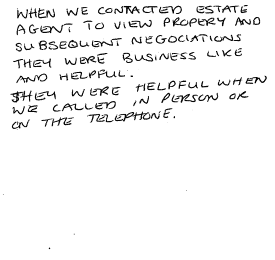 WHEN WE CONTACTED ESTATE
AGENT TO VIEW PROPERY AND
SUBSEQUENT NEGOCIATIONS
THEY WERE BUSINESS LIKE
AND HELPFUL.
THEY WERE HELPFUL WHEN
WE CALLED IN PERSON OR
ON THE TELEPHONE.